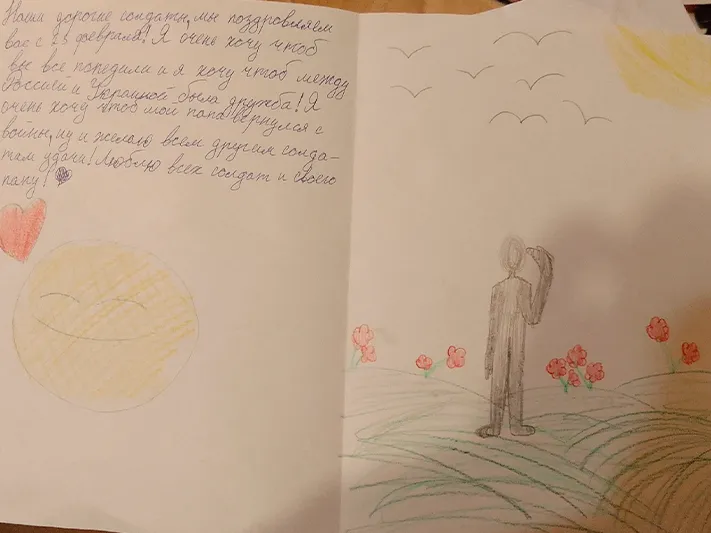 Наши дорогие солдаты, мы поздровляем
вас с 23 февраля! Я очень хочу чтоб
вы все победили и я хочу чтоб между
Россией и Украиной была дружба! Я
очень хочу чтоб мой папа вернулся с
войны, ну и желаю всем другим солда-
там удачи! Люблю всех солдат и своего
папу!